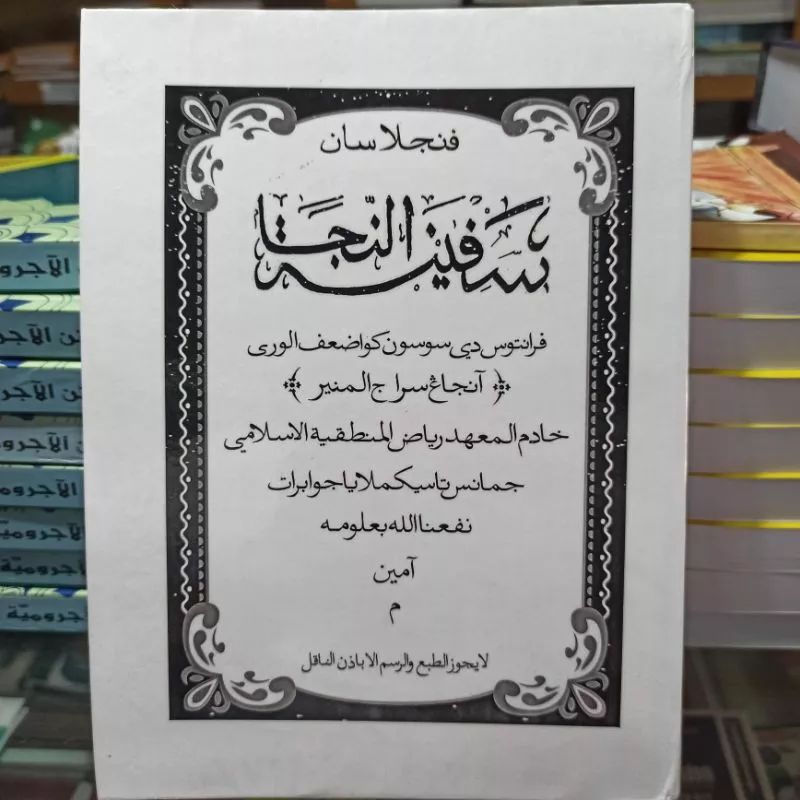 فنجلاسان
سَفِينَة النَّجَتا
فرانتوس دي سوسون كواضعف الورى
﴿ آنجاڠ سراج المنير ﴾
خادم المعهد رياض المنطقية الاسلامي
جمانس تاسيكملايا جوابرات
نفعنا الله بعلومه
آمين
م
لايجوز الطبع والرسم الا باذن الناقل
الآجرو
تن الآجر
تن الآجر
الآجرو
الآجروم
لآجروميّ
جروميّة
جروميّة